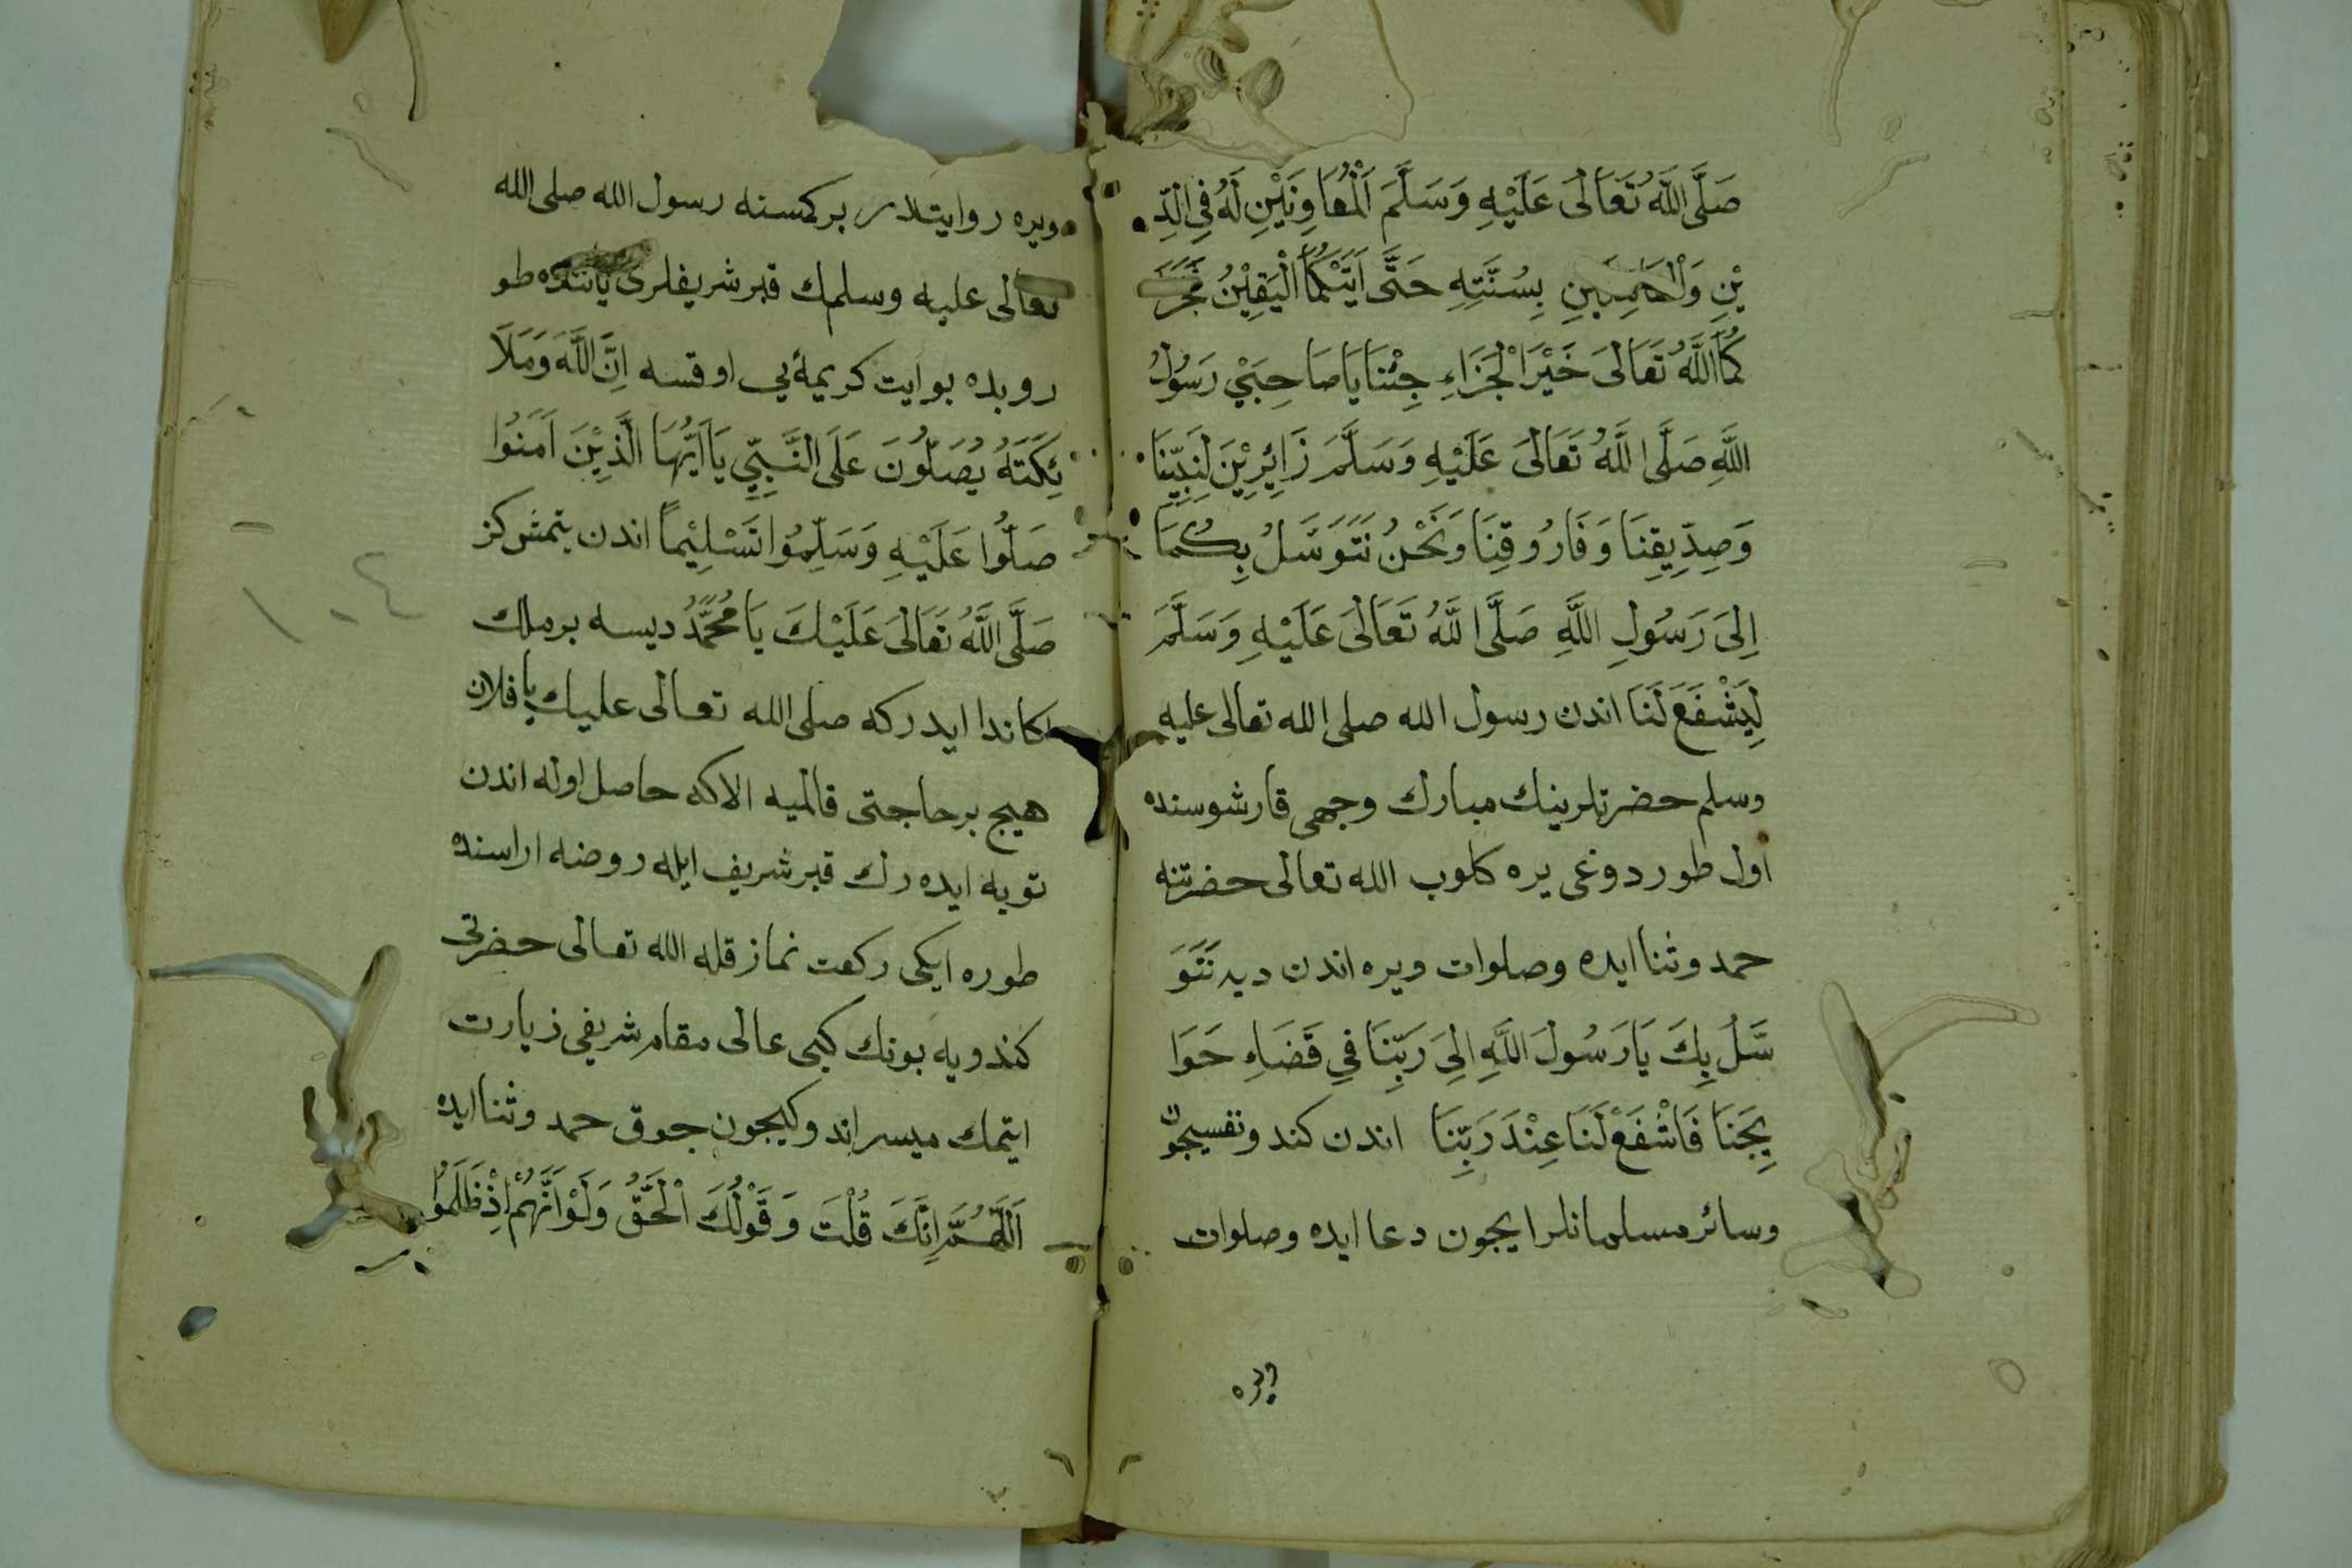 صَلَّى اللَّهُ تَعَالَى عَلَيْهِ وَسَلَّمَ اَلْمُعَاوِنَيْنِ لَهُ فِي الدِّ
يْنِ وَلْقَائِمَيْنِ بِسُنَّتِهِ حَتَّى اَتَيَكُمَا الْيَقِيْنُ فَجَزَ
كُمَا اللَّهُ تَعَالَى خَيْرَ الْجَزَاءِ جِئْنَا يَا صَاحِبَيْ رَسُولِ
اللَّهِ صَلَّى اللَّهُ تَعَالَى عَلَيْهِ وَسَلَّمَ زَائِرِيْنَ لِنَبِيِّنَا
وَصِدِّيقِنَا وَفَارُوقِنَا وَنَحْنُ نَتَوَسَّلُ بِكُمَا
اِلَى رَسُولِ اللَّهِ صَلَّى اللَّهُ تَعَالَى عَلَيْهِ وَسَلَّمَ
لِيَشْفَعَ لَنَا اندن رسول الله صلى الله تعالى عليه
وسلم حضرتلرينك مبارك وجهى قارشوسنده
اول طوردوغى يره كلوب الله تعالى حضرتنه
حمد وثنا ايده وصلوات ويره اندن ديه نَتَوَ
سَّلُ بِكَ يَا رَسُولَ اللَّهِ اِلَى رَبِّنَا فِي قَضَاءِ حَوَا
يِجَنَا فَاشْفَعْ لَنَا عِنْدَ رَبِّنَا اندن كند ونفسيچون
وسائر مسلمانلر ايچون دعا ايده وصلوات
ويره
ويره روايتلدر بر كمسنه رسول الله صلى الله
تعالى عليه وسلمك قبر شريفلرى ياننده طو
روبده بو ايت كريمه يى اوقسه اِنَّ اللَّهَ وَمَلَا
ئِكَتَهُ يُصَلُّونَ عَلَى النَّبِيِّ يَا اَيُّهَا الَّذِيْنَ اَمَنُوا
صَلُّوا عَلَيْهِ وَسَلِّمُوا تَسْلِيْمًا اندن يتمش كز
صَلَّى اللَّهُ تَعَالَى عَلَيْكَ يَا مُحَمَّدُ ديسه بر ملك
اكا ندا ايدر كه صلى الله تعالى عليك يا فلان
هيچ بر حاجتى قالميه الا كه حاصل اوله اندن
توبه ايده رك قبر شريف ايله روضه اراسنده
طوره ايكى ركعت نماز قله الله تعالى حضرتى
كندويه بونك كبى عالى مقام شريفى زيارت
ايتمك ميسر اندوكيچون چوق حمد وثنا ايده
اَللَّهُمَّ اِنَّكَ قُلْتَ وَقَوْلُكَ الْحَقُّ وَلَوْ اَنَّهُمْ اِذْ ظَلَمُوا
١٠٤